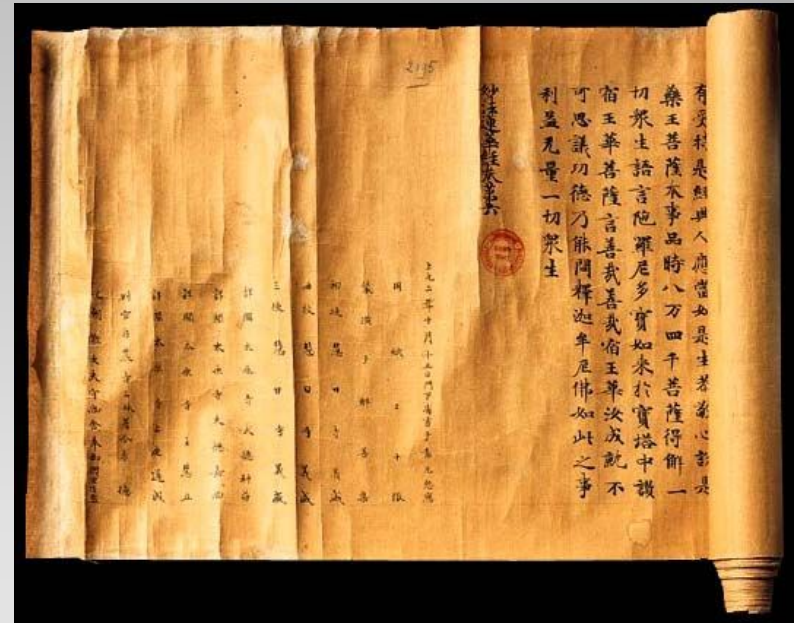 2195
有受持是經典人應當如是生恭敬心說是
藥王菩薩本事品時八万四千菩薩得解一
切衆生語言陁羅尼多寶如來於寶塔中讃
宿王華菩薩言善哉善哉宿王華汝成就不
可思議功德乃能問釋迦牟尼佛如此之事
利益无量一切衆生
妙法蓮華經卷第六
上元二年十月廿五日門下省書手袁元悊寫
用紙二十張
裝潢手解善集
初校慧日寺義威
再校慧日寺義威
三校慧日寺義威
詳閱太原寺大德神符
詳閱太原寺大德嘉尚
詳閱太原寺主慧立
詳閱太原寺上座道成
判官司農寺上林署令李德